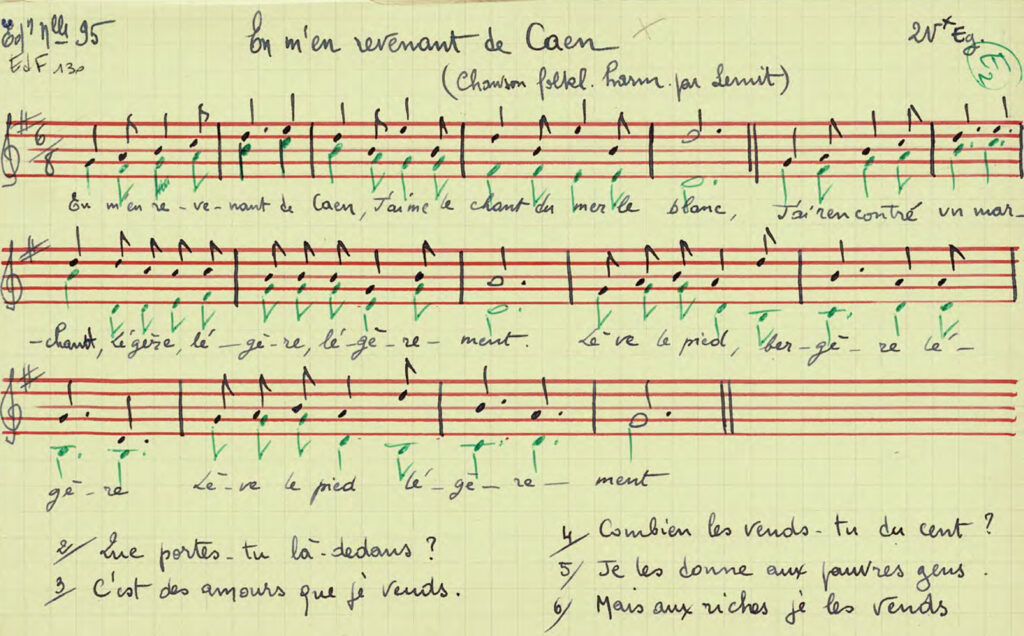 Edon nlles 95
EdF 130
En m'en revenant de Caen
2V x Eg.
E2
(Chanson folkl. harm. par Lemit)
6/8
En m'en re-ve-nant de Caen, J'aime le chant du merle blanc, J'ai rencontré un mar-
-chant, légère, lé-gè-re, lé-gè-re-ment. Lè-ve le pied, ber-gè-re lé-
gè-re Lè-ve le pied lé-gè-re-ment
2/ Que portes-tu là-dedans ?
3/ C'est des amours que je vends.
4/ Combien les vends-tu du cent ?
5/ Je les donne aux pauvres gens.
6/ Mais aux riches je les vends